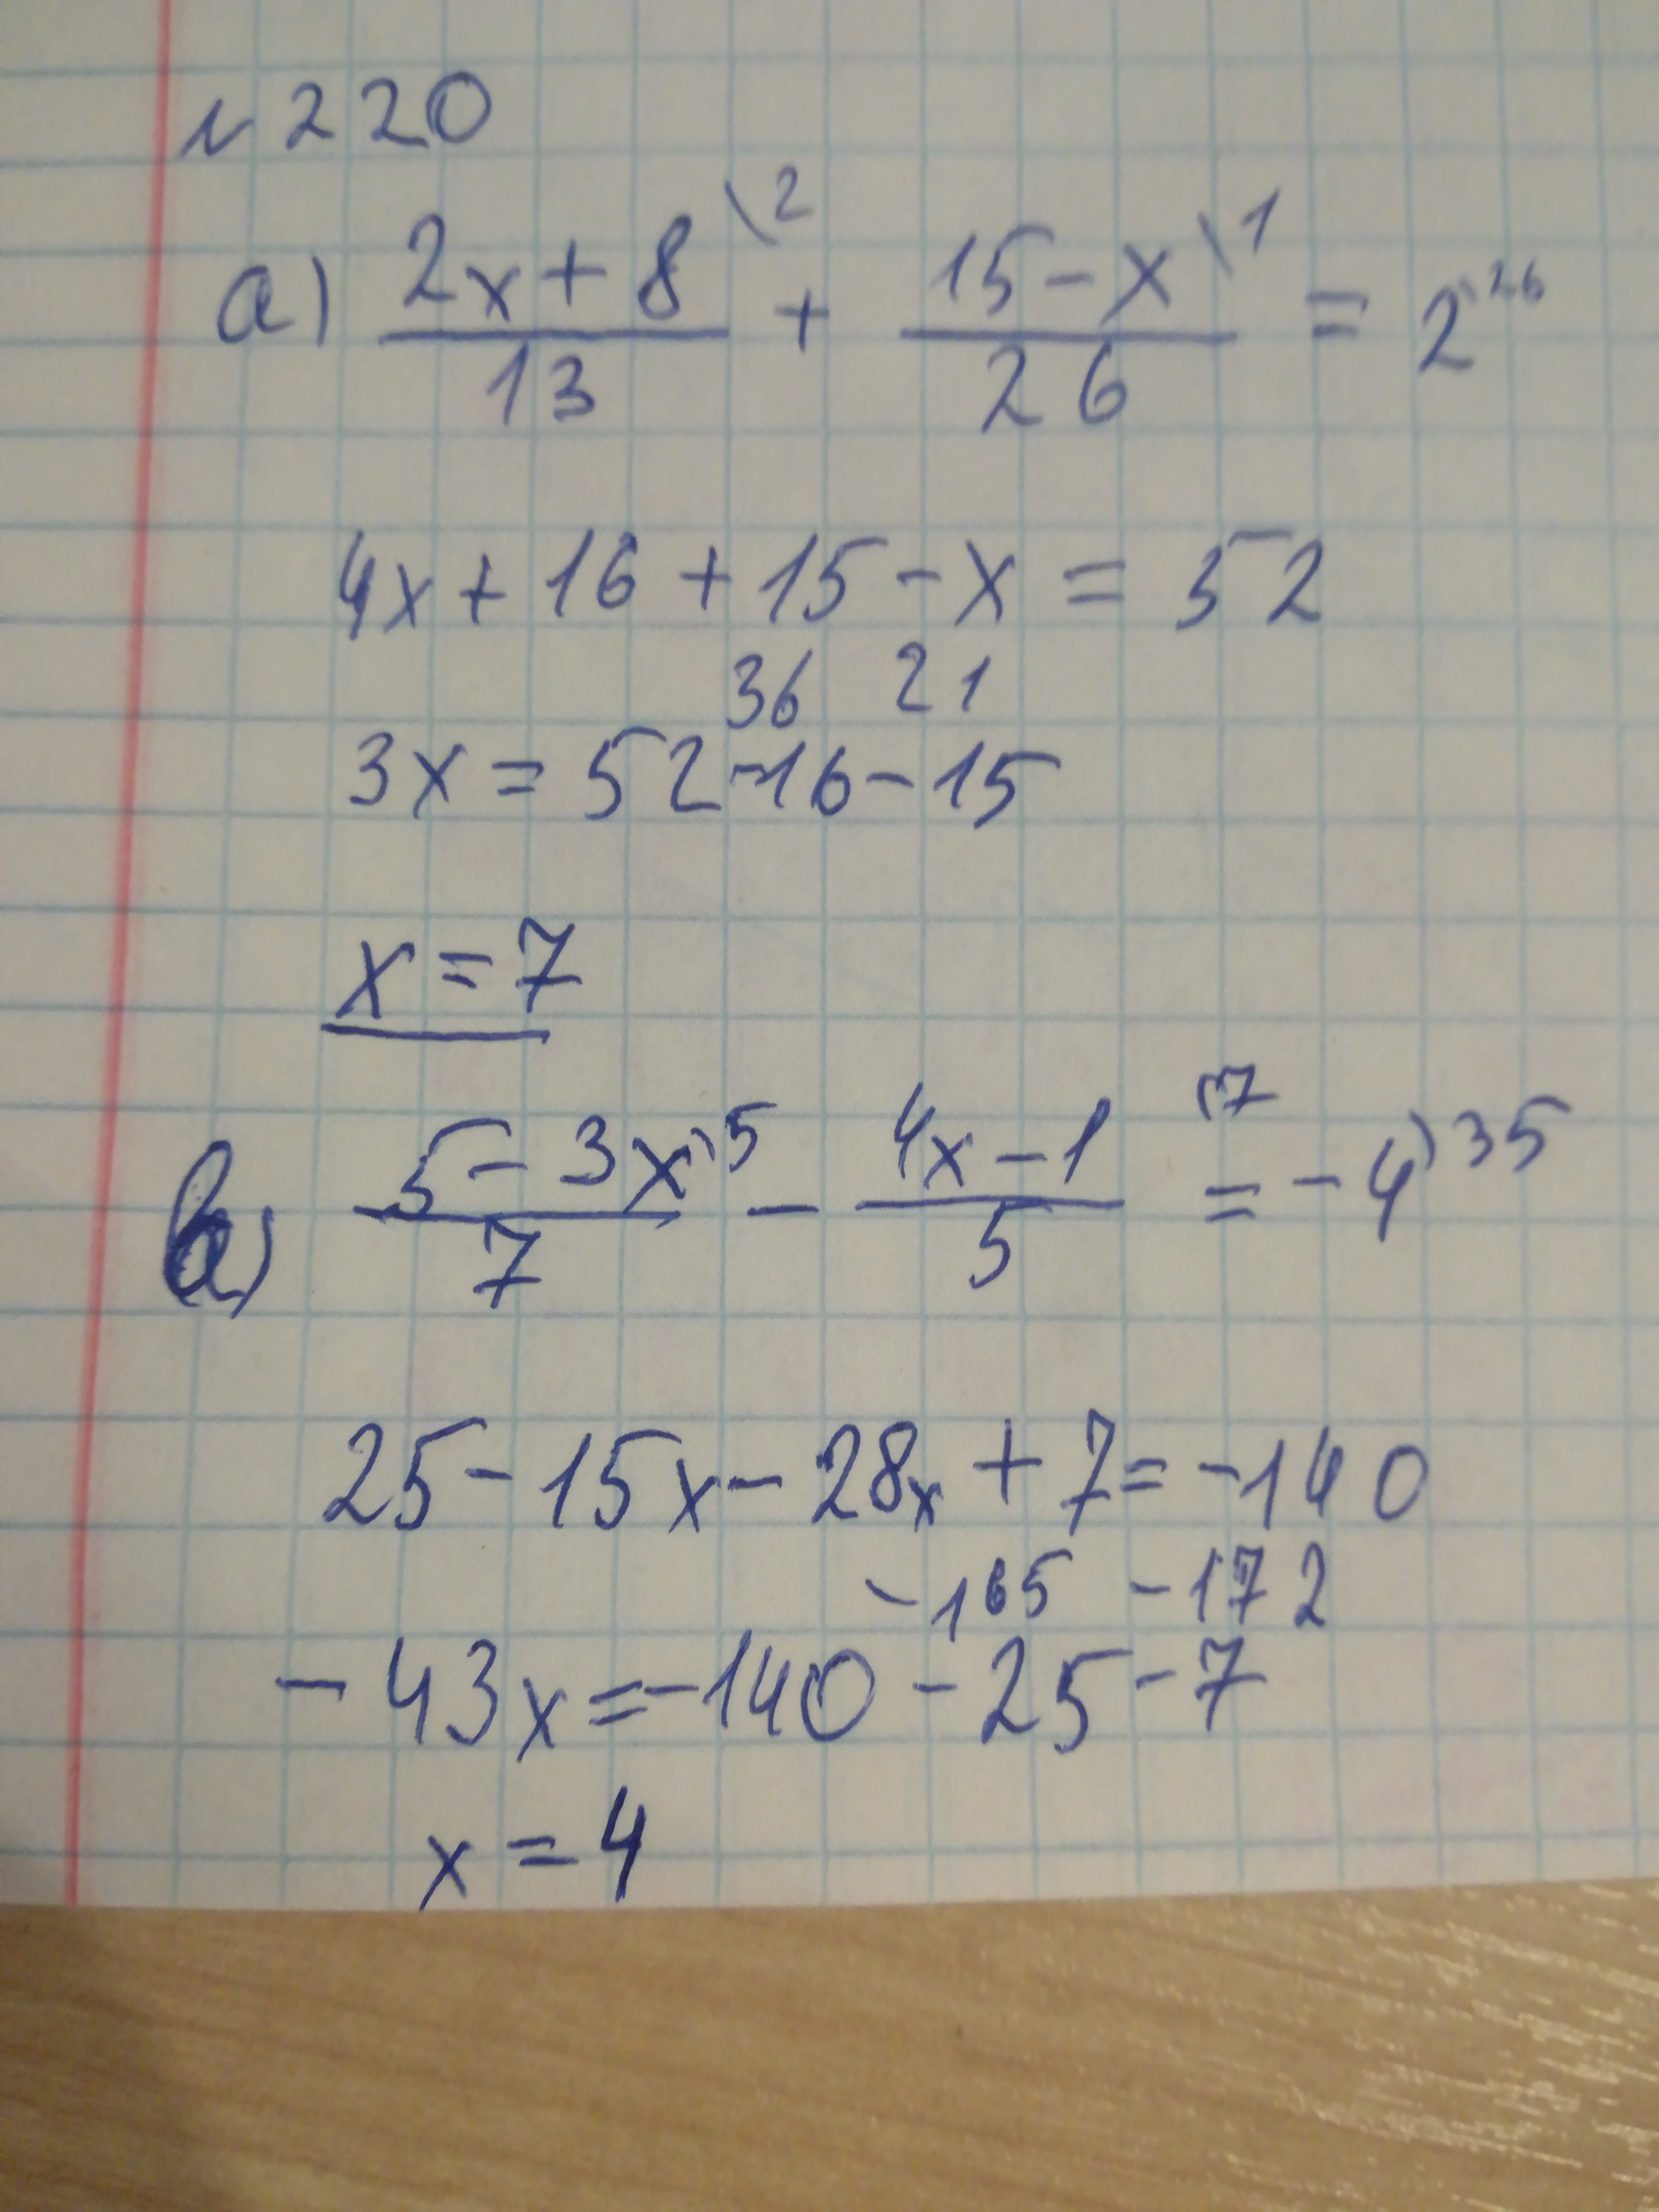 №220
а) (2x+8)/13 \2 + (15-x)/26 \1 = 2 \26
4x+16+15-x=52
36 21
3x=52-16-15
x=7
в) (5-3x)/7 \5 - (4x-1)/5 \7 = -4 \35
25-15x-28x+7=-140
-165 -172
-43x=-140-25-7
x=4